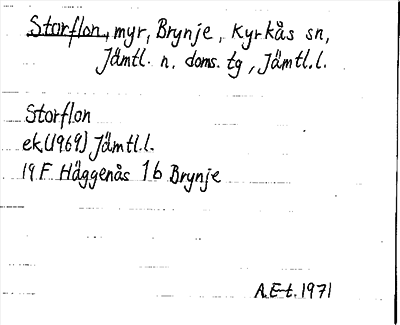 Storflon, myr, Brynje, Kyrkås sn,
Jämtl. n. doms. tg, Jämtl.l.
Storflon
ek.(1969) Jämtl.l.
19 F Häggenås 1 b Brynje
A.E-t. 1971